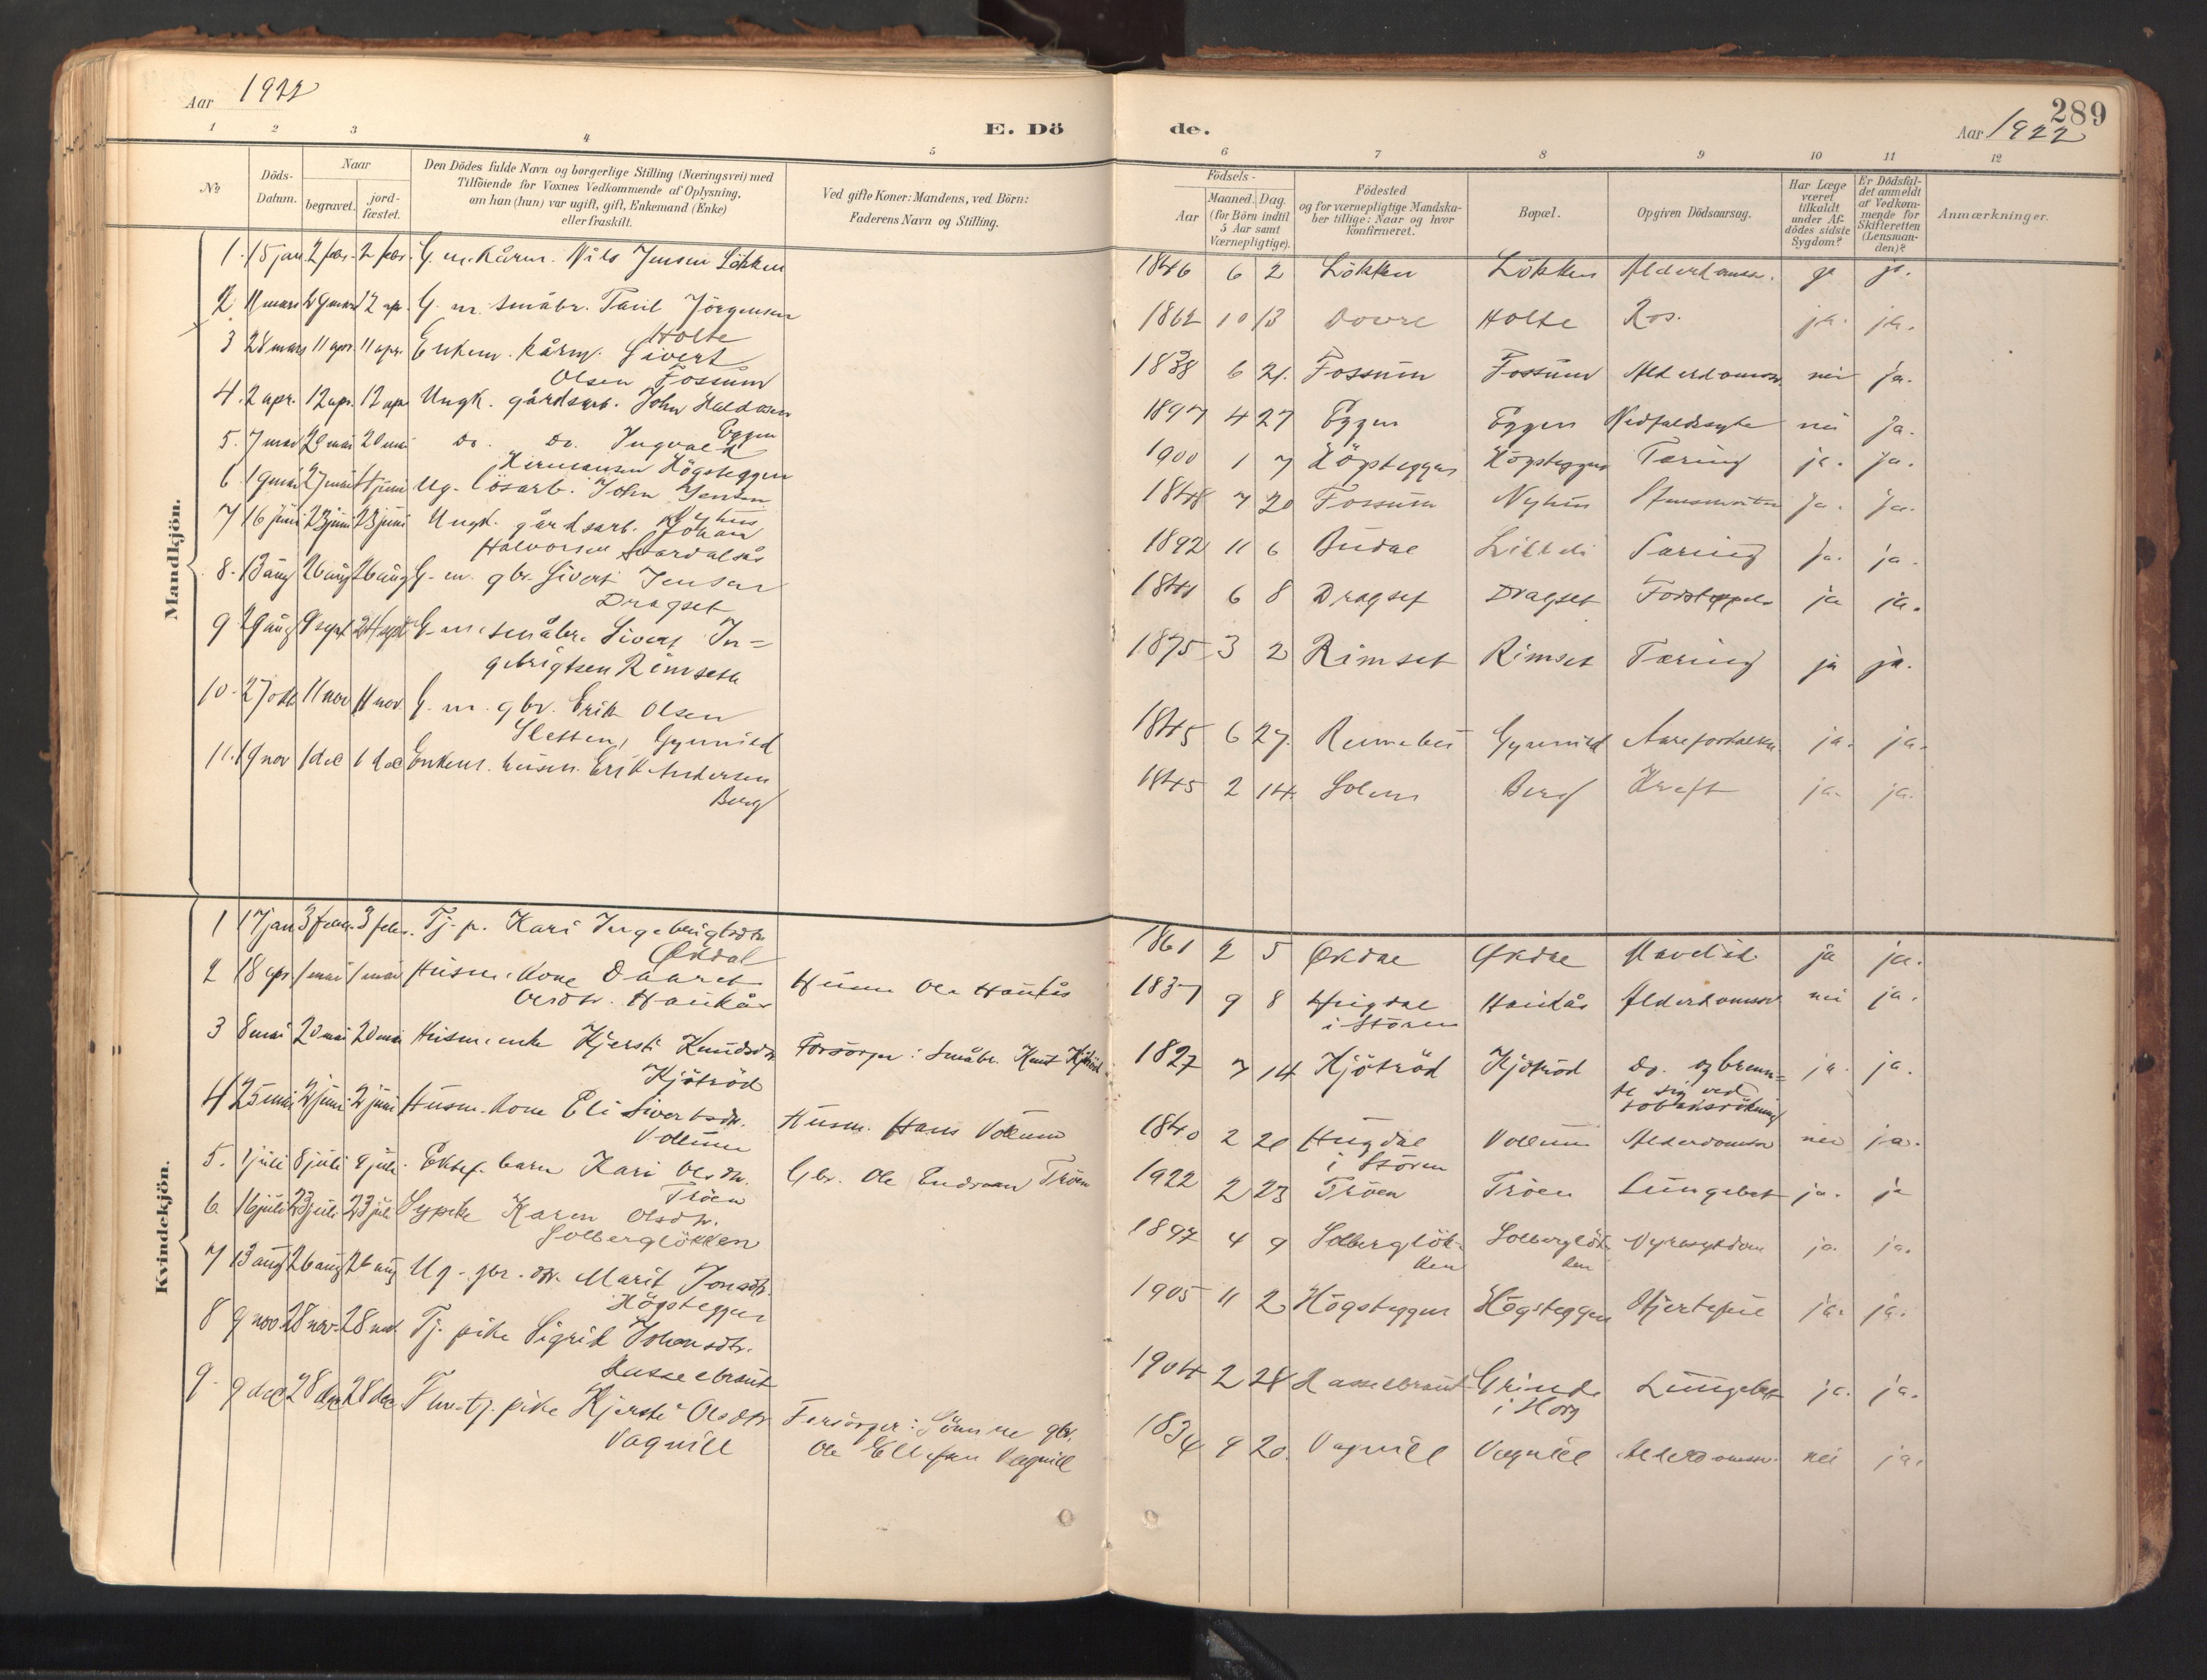 Aar 1922
E. Dö
de.
289
Aar 1922
1 2 3 4 5 6 7 8 9 10 11 12
№
Döds-
Datum.
Naar
begravet.
jord-
fæstet.
Den Dödes fulde Navn og borgerlige Stilling (Næringsvei) med
Tilföiende for Voxnes Vedkommende af Oplysning,
om han (hun) var ugift, gift, Enkemand (Enke)
eller fraskilt.
Ved gifte Koner: Mandens, ved Börn:
Faderens Navn og Stilling.
Födsels-
Aar
Maaned. Dag.
(for Börn indtil
5 Aar samt
Værnepligtige).
Födested
og for værnepligtige Mandska-
ber tillige: Naar og hvor
konfirmeret.
Bopæl.
Opgiven Dödsaarsag.
Har Læge
været
tilkaldt
under Af-
dödes sidste
Sygdom?
Er Dödsfal-
det anmeldt
af Vedkom-
mende for
Skifteretten
(Lensman-
den)?
Anmærkninger.
Mandkjön.
1. 15 jan 2 febr. 2 febr. G. m. kårm. Nils Jensen Løkken 1846 6 2 Løkken Løkken Alderdomssv. ja ja.
2. 11 mars 29 mars 12 apr. G. m. småbr. Jörgensen
Holte 1862 10 13 Dovre Holte Ros. ja. ja.
3 28 mars 11 apr. 11 apr. Enkem. kårm. Sivert
Olsen Fossum 1838 6 21. Fossum Fossum Alderdomssv. nei ja.
4. 2 apr. 12 apr. 12 apr. Ungk. gårdsarb. John Haldosen
Eggen 1897 4 27 Eggen Eggen Nedfaldssyke nei ja.
5. 7 mai 20 mai 20 mai do. do. Ingvald
Hermansen Högsteggen 1900 1 7 Högsteggen Högsteggen Tæring ja. ja.
6. 19 mai 27 mai 4 juni Ug. lösarb. John Jensen
Nyhus 1848 7 20 Fossum Nyhus ja. ja.
7 16 juni 23 juni 23 juni Ungk. gårdsarb. Johan
Halvorsen 1892 11 6 Budal Tæring ja. ja.
8. 13 aug 26 aug 26 aug G. m. gbr. Sivert Jensen
Dragset 1841 6 8 Dragset Dragset ja ja.
9 29 aug 9 sept 24 sept G. m. småbr. Sivert In=
gebrigtsen Rimseth 1875 3 2 Rimset Rimset Tæring ja ja.
10. 27 okt 11 nov 11 nov G. m. gbr. Erik Olsen
Sletten, Gynnild 1845 6 27. Rennebu Gynnild Aareforkalkn. ja. ja.
11. 19 nov 1 dec 1 dec Enkem. husm. Erik Andersen
Berg 1845 2 14. Solem Berg Kræft ja. ja.
Kvindekjön.
1 17 jan 3 febr. 3 febr. Tj. p. Kari Ingebrigtsdtr.
Økdal 1861 2 5 Økdal Økdal Mavelid. ja ja.
2 18 apr 1 mai 1 mai Husm. kone
Olsdtr. Haukås Husm Ole Haukås 1837 9 8 Hugdal
i Støren Haukås Alderdomssv nei ja.
3 8 mai 20 mai 20 mai Husm. enke Kjersti Knudsdtr.
Kjötröd Forsörger: Småbr. Knut Kjötröd 1827 7 14 Kjötröd Kjötröd do. og brenn=
te sig ved
tobaksrökning ja. ja.
4 25 mai 2 juni 2 juni Husm. kone Eli Sivertsdtr.
Vollum Husm. Hans Vollum 1840 2 20 Hugdal
i Støren Vollum Alderdomssv nei ja.
5. 1 juli 8 juli 8 juli. Ektef. barn Kari Olsdtr.
Tröen Gbr. Ole Endresen Tröen 1922 2 23 Tröen Tröen Lungebet. ja. ja
6. 16 juli 23 juli 23 juli Sypike Karen Olsdtr.
Solberglökken 1897 4 9 Solberglök-
ken Solberglök-
ken Nyresygdom ja. ja.
7 13 aug 26 aug 26 aug Ug. gbr. dtr. Marit Jonsdtr.
Högsteggen 1905 11 2 Högsteggen Högsteggen Hjertefeil ja. ja.
8 9 nov 28 nov. 28 nov. Tj. pike Sigrid Johansdtr.
Hasselbraut 1904 2 28 Hasselbraut Grinde
i Horg Lungebet ja. ja.
9. 9 dec 28 dec 28 dec. F. hv. tj. pike Kjersti Olsdtr.
Vagnill Forsörger: Sönnen gbr.
Ole Ellefsen Vagnill 1834 9 20. Vagnill Vagnill Alderdomssv. nei ja.